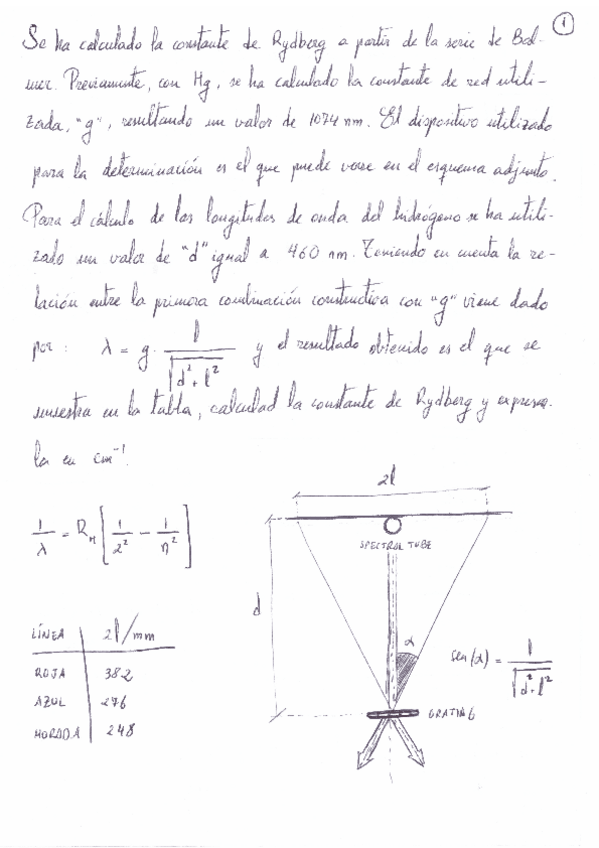 1
Se ha calculado la constante de Rydberg a partir de la serie de Bal-
mer. Previamente, con Hg, se ha calculado la constante de red utili-
zada, "g", resultando un valor de 1074 nm. El dispositivo utilizado
para la determinación es el que puede verse en el esquema adjunto.
Para el cálculo de las longitudes de onda del hidrógeno se ha utili-
zado un valor de "d" igual a 460 mm. Teniendo en cuenta la re-
lación entre la primera combinación constructica con "g" viene dado
por: λ = g · l / √(d² + l²) y el resultado obtenido es el que se
muestra en la tabla, calculad la constante de Rydberg y expresa-
la en cm⁻¹.
1/λ = R_H [1/2² - 1/n²]
LÍNEA 2l/mm
ROJA 382
AZUL 276
MORADA 248
2l
SPECTRAL TUBE
d
α
sen(α) = l / √(d² + l²)
GRATING